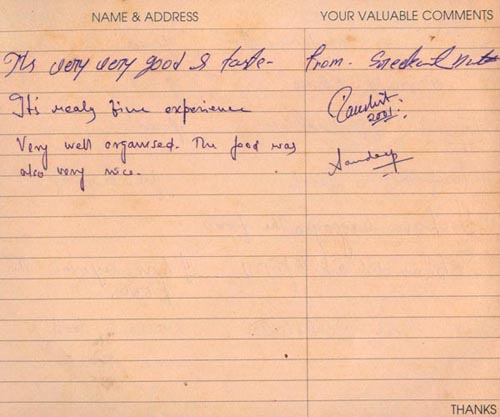 NAME & ADDRESS YOUR VALUABLE COMMENTS
It's very very good & taste- From.
It's realy fine experience
2001.
Very well organised. The food was Sandeep
also very nice.
THANKS